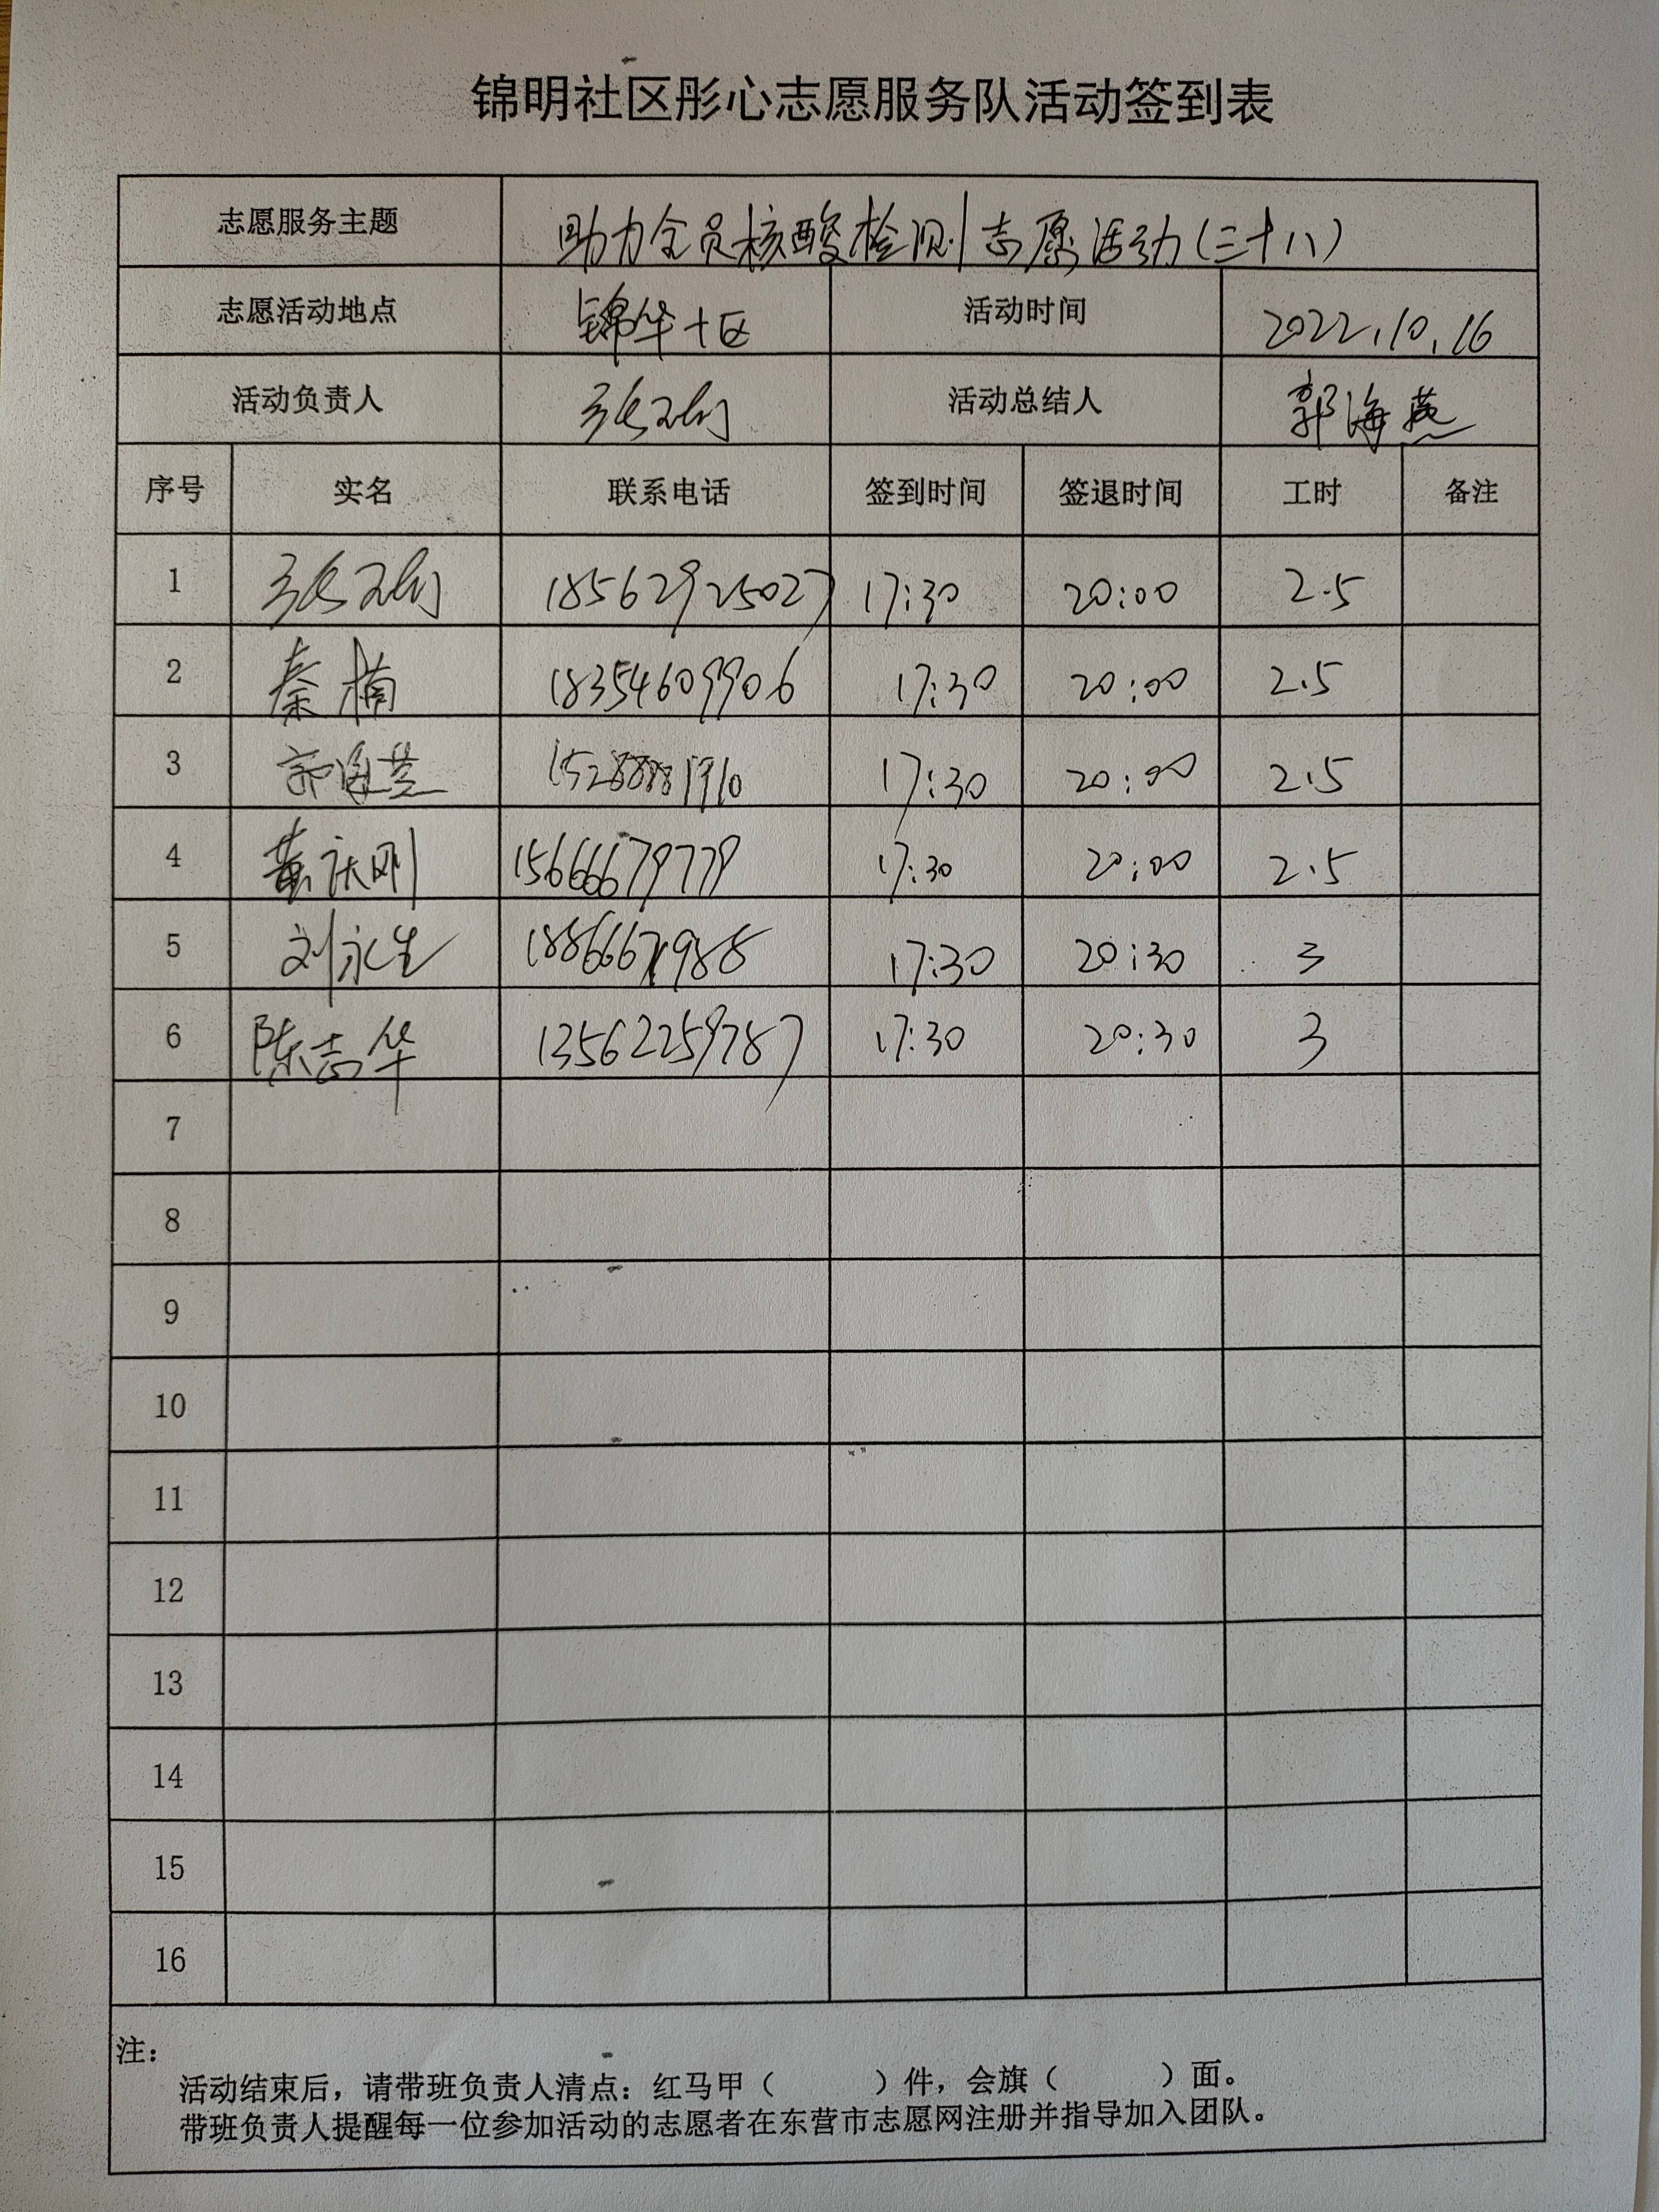 锦明社区彤心志愿服务队活动签到表
志愿服务主题 助力全员核酸检测志愿活动(三十八)
志愿活动地点 锦华十区 活动时间 2022.10.16
活动负责人 张 活动总结人 郭海燕
序号 实名 联系电话 签到时间 签退时间 工时 备注
1 张 18562925027 17:30 20:00 2.5
2 秦楠 18354609906 17:30 20:00 2.5
3 郭海燕 17:30 20:00 2.5
4 黄庆刚 15666679779 17:30 20:00 2.5
5 刘永生 17:30 20:30 3
6 陈志华 13562259787 17:30 20:30 3
7
8
9
10
11
12
13
14
15
16
注：
活动结束后，请带班负责人清点：红马甲（ ）件，会旗（ ）面。
带班负责人提醒每一位参加活动的志愿者在东营市志愿网注册并指导加入团队。